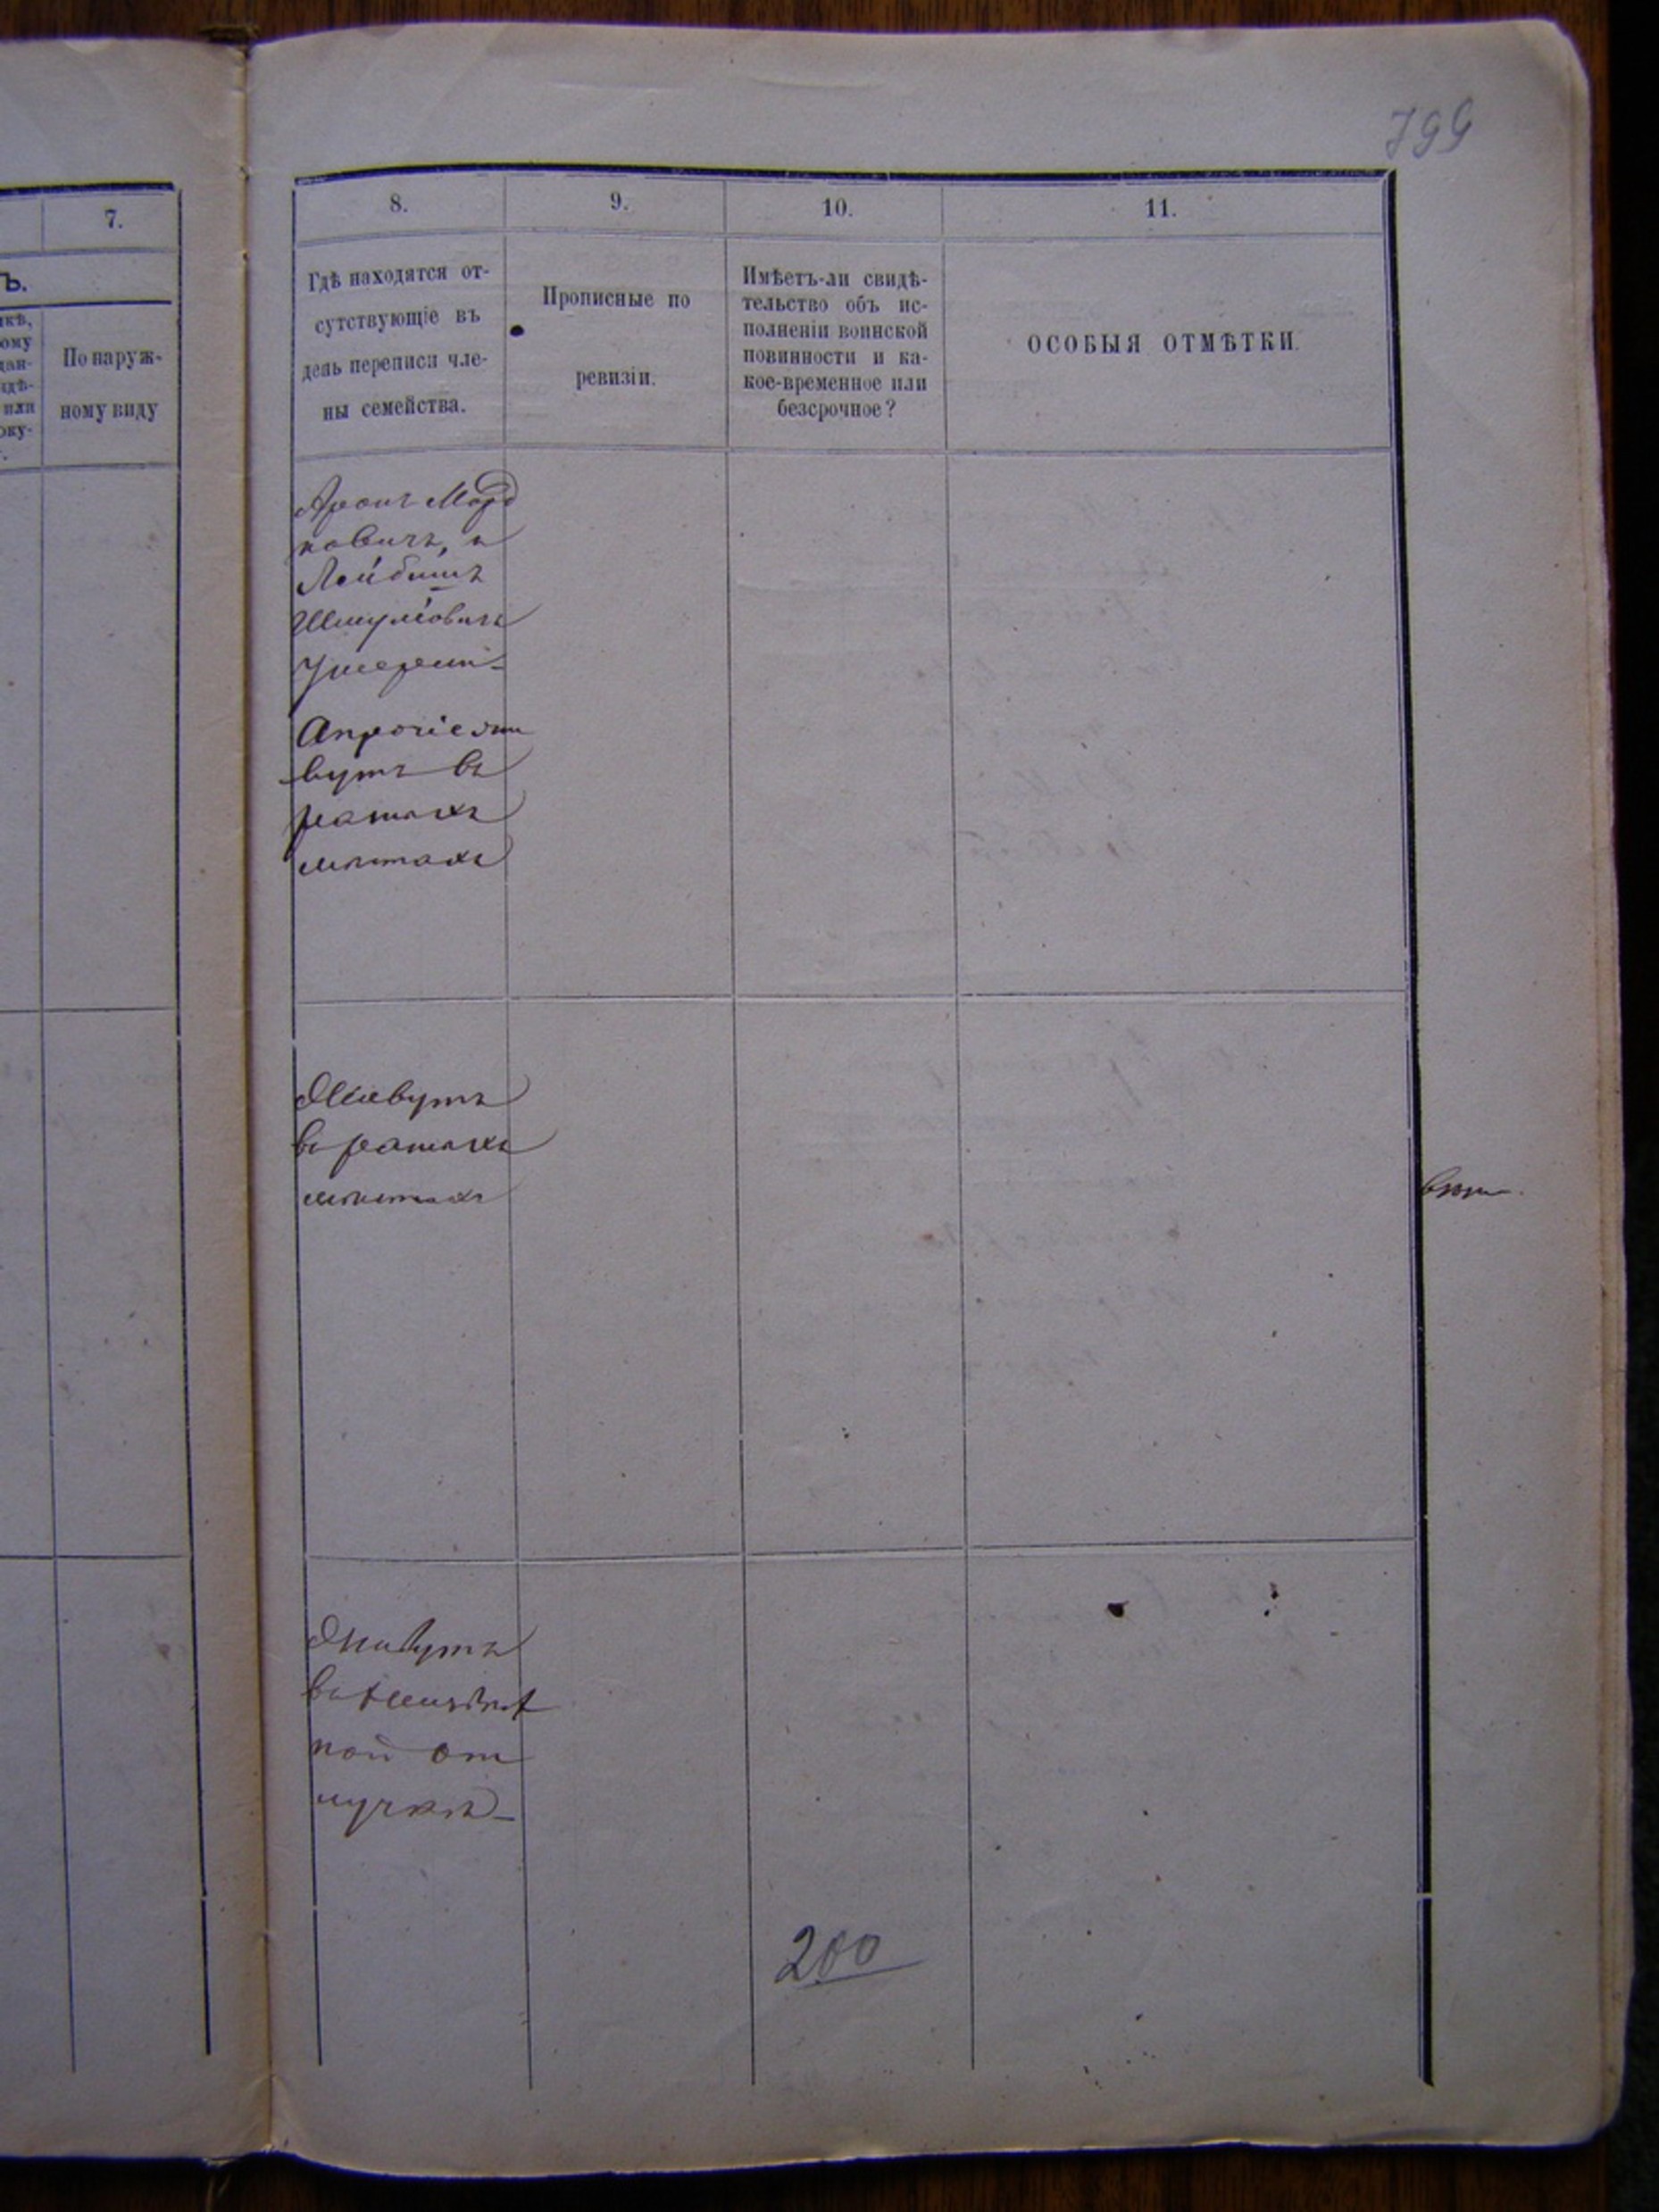 799
7.
Ъ.
По наруж-
ному виду
8.
9.
10.
11.
Гдѣ находятся от-
сутствующіе въ
день переписи чле-
ны семейства.
Прописные по
ревизіи.
Имѣетъ-ли свидѣ-
тельство объ ис-
полненіи воинской
повинности и ка-
кое-временное или
безсрочное?
ОСОБЫЯ ОТМѢТКИ.
Аронъ Морд
ковичъ, и
Лейбишъ
Шмулёвичъ
Умерши
Апрочіе жи
вутъ въ
разныхъ
мѣстахъ
Живутъ
въ разныхъ
мѣстахъ
Живутъ
въ
ной от
лучкѣ
200